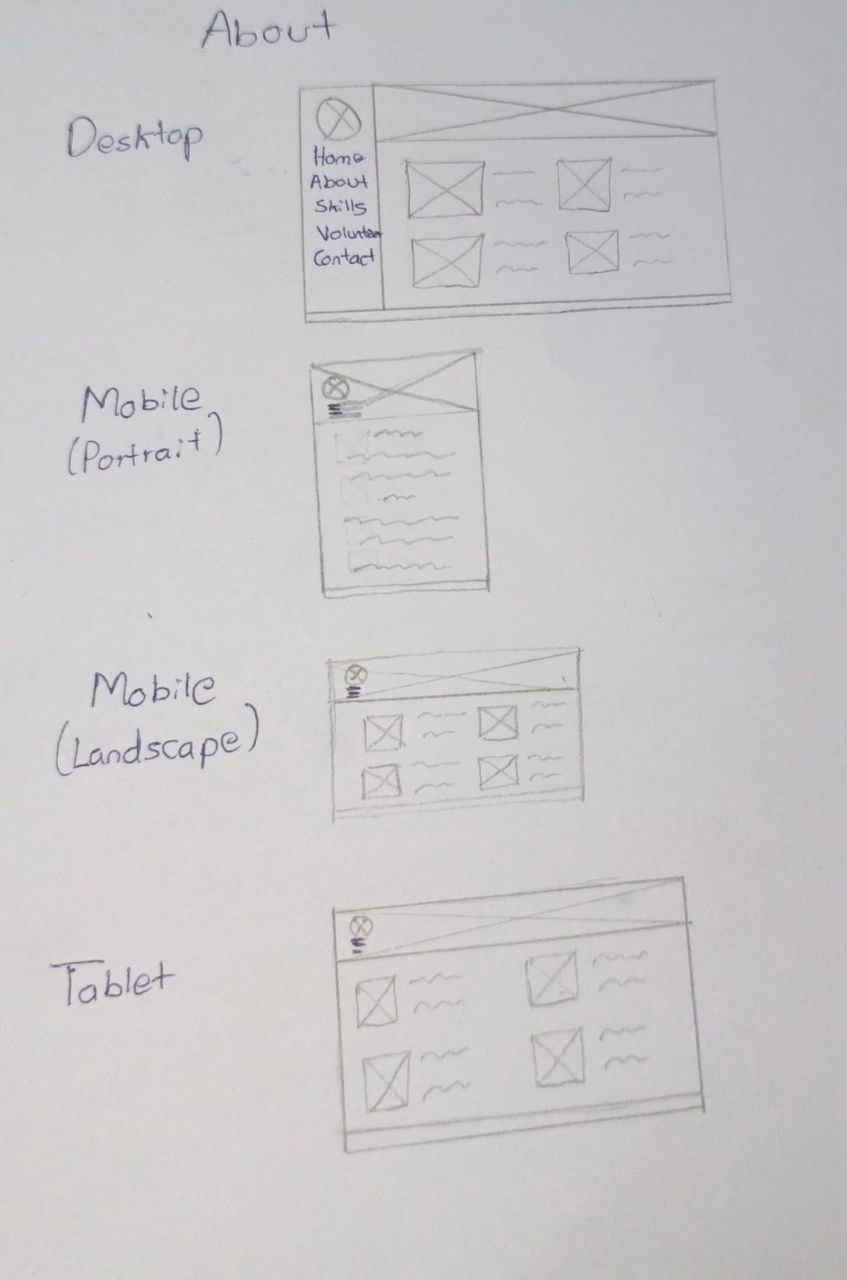 About
Desktop
Home
About
Skills
Volunteer
Contact
Mobile
(Portrait)
Mobile
(Landscape)
Tablet